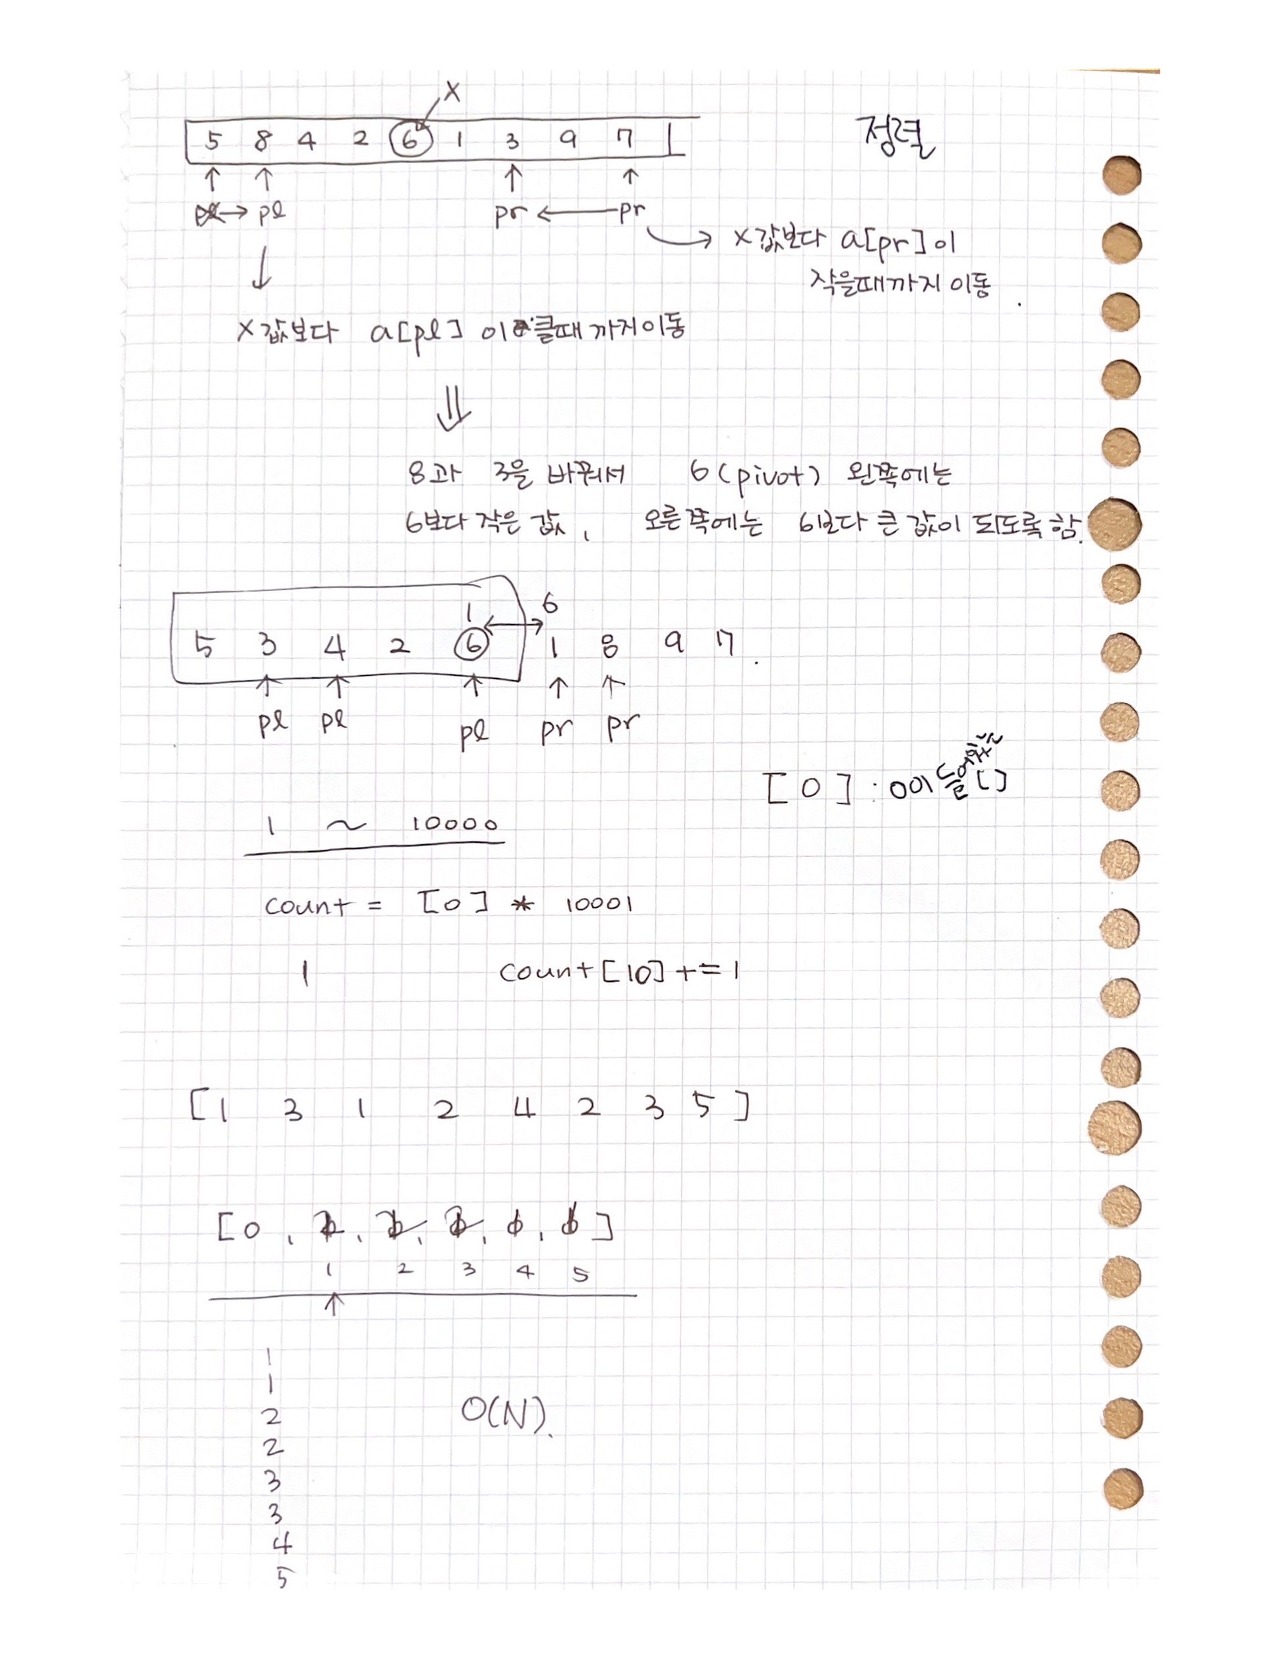 x
5 8 4 2 6 1 3 9 7
정렬
pl → pl
pr ← pr
x값보다 a[pr]이
작을때까지 이동.
x값보다 a[pl]이 클때까지 이동
8과 3을 바꿔서 6(pivot) 왼쪽에는
6보다 작은 값, 오른쪽에는 6보다 큰 값이 되도록 함.
1 6
5 3 4 2 6 1 8 9 7.
pl pl pl pr pr
[0] : 0이 들어있는 []
1 ~ 10000
count = [0] * 10001
1 count[10] += 1
[1 3 1 2 4 2 3 5]
[0, 2, 2, 2, 1, 1]
1 2 3 4 5
1
1
2
2
O(N).
3
3
4
5